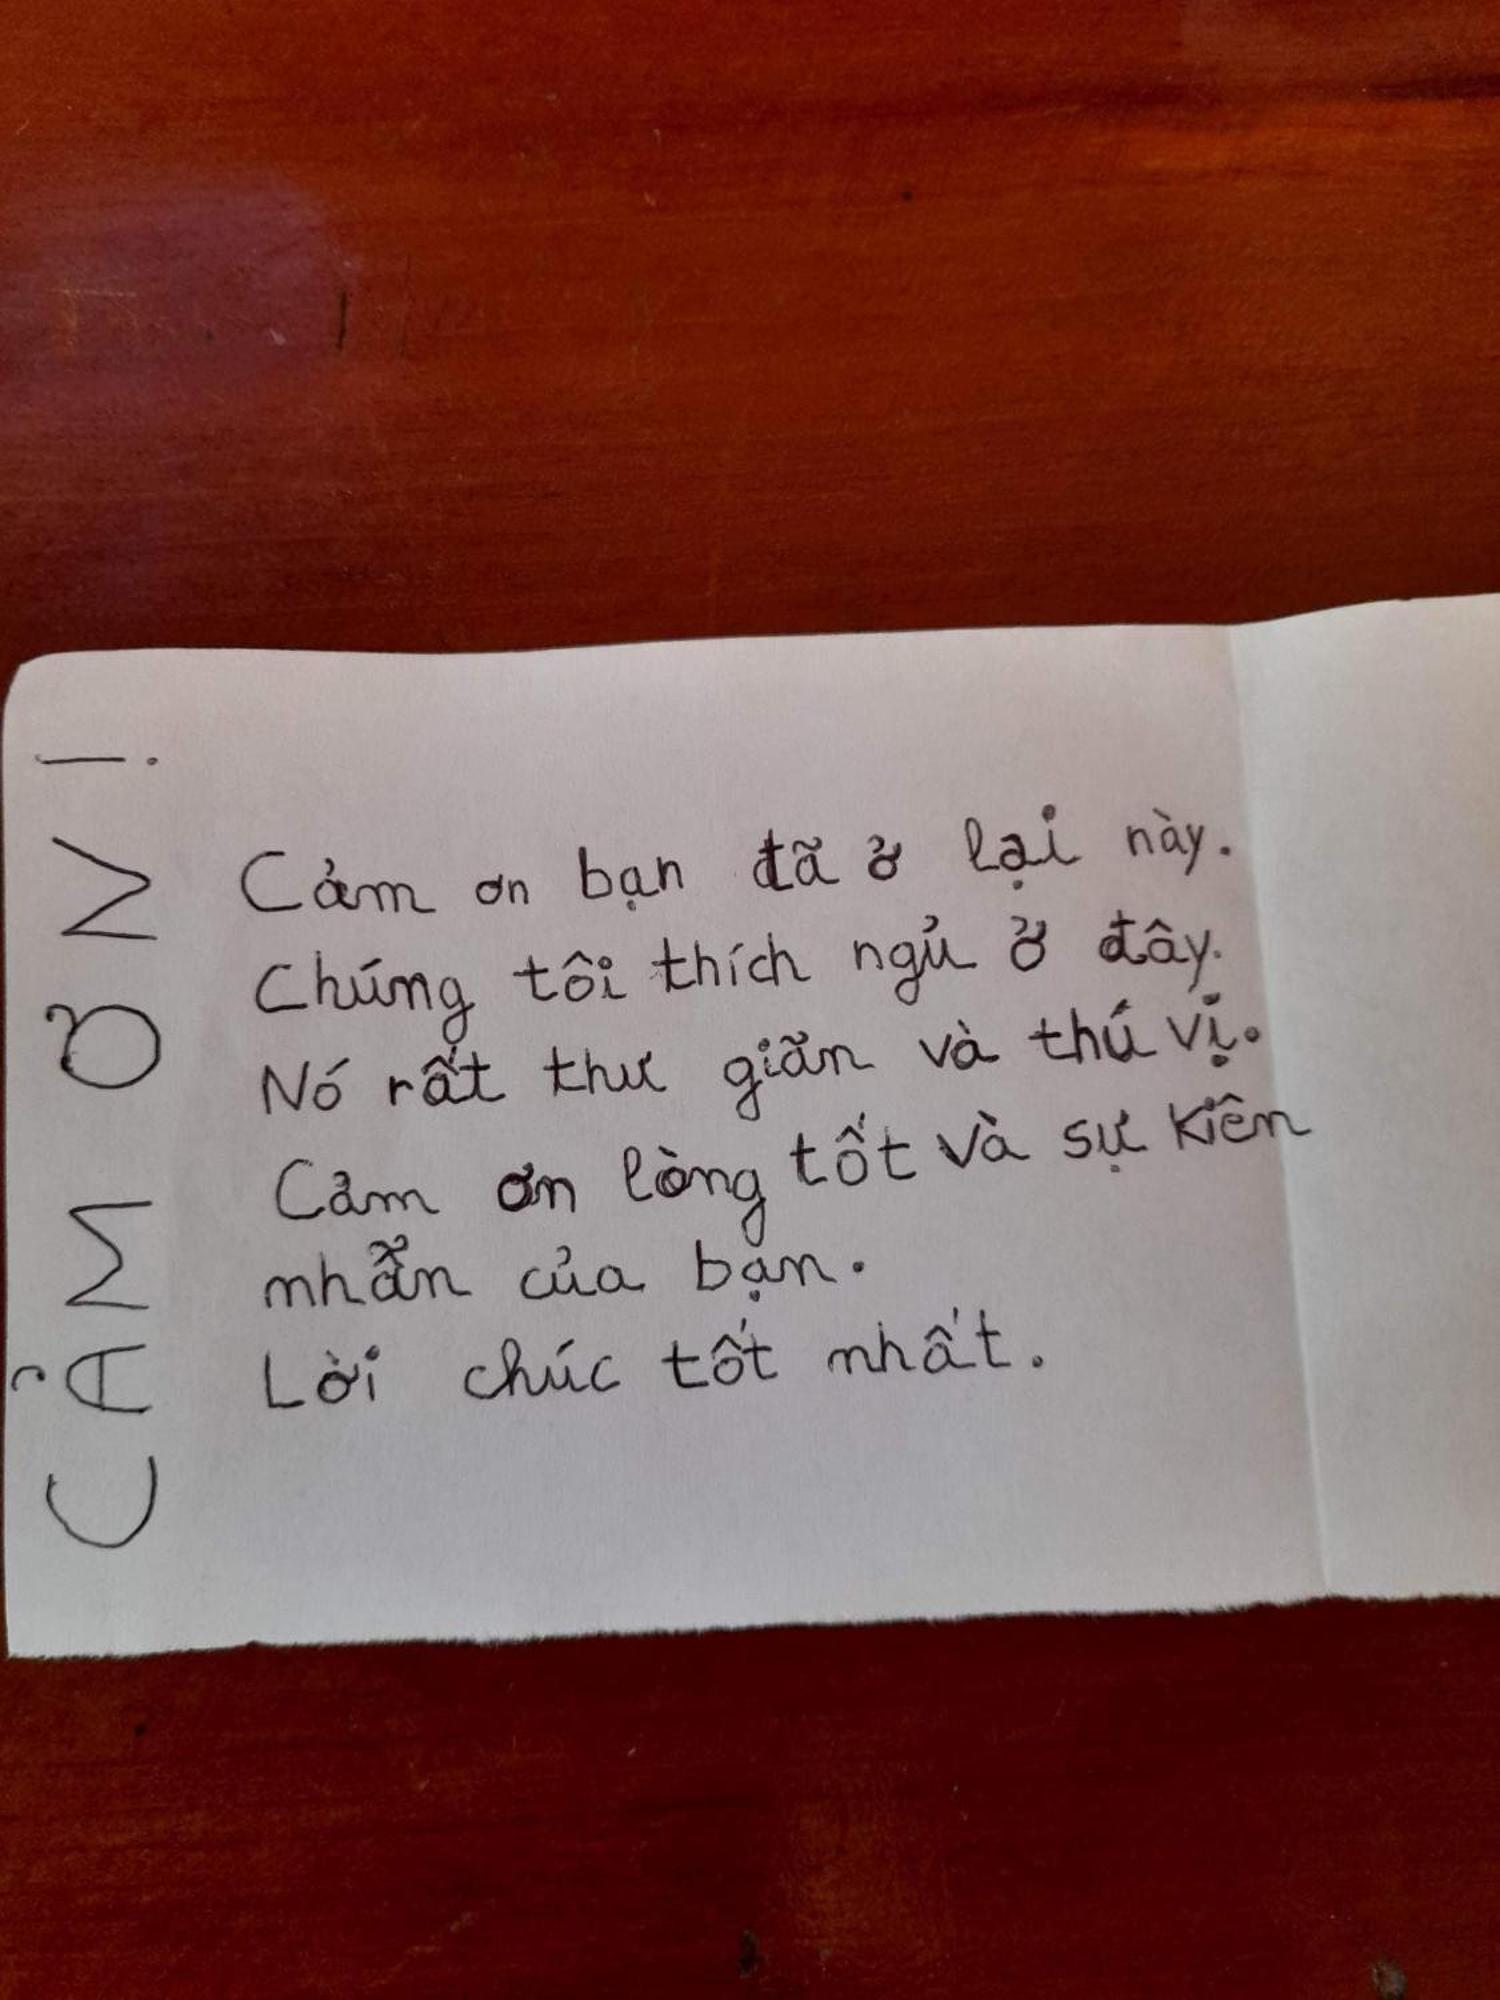 CẢM ƠN!
Cảm ơn bạn đã ở lại này.
Chúng tôi thích ngủ ở đây.
Nó rất thư giãn và thú vị.
Cảm ơn lòng tốt và sự kiên
nhẫn của bạn.
Lời chúc tốt nhất.